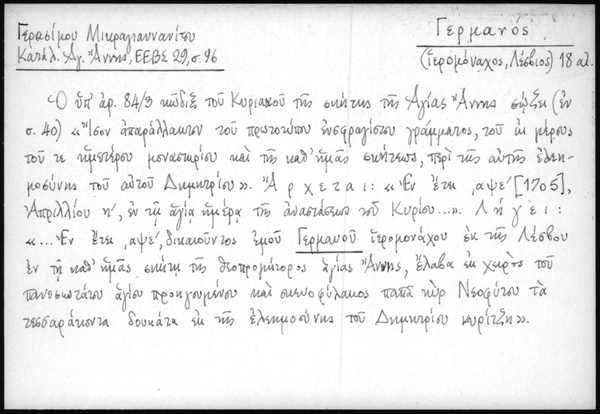 Γερασίμου Μικραγιαννανίτου
Κατάλ. Ἁγ. Ἄννης, ΕΕΒΣ 29, σ. 96
Γερμανός
(ἱερομόναχος, Λέσβιος) 18 αἰ.
Ὁ ὑπ' ἀρ. 84/3 κῶδιξ τοῦ Κυριακοῦ τῆς σκήτης τῆς Ἁγίας Ἄννης σῴζει (ἐν
σ. 40) «Ἴσον ἀπαράλλακτον τοῦ πρωτοτύπου ἐνσφραγίστου γράμματος, τοῦ ἐκ μέρους
τοῦ τε ἡμετέρου μοναστηρίου καὶ τῆς καθ' ἡμᾶς σκήτεως, περὶ τῆς αὐτῆς ἐλεη-
μοσύνης τοῦ αὐτοῦ Δημητρίου». Ἄρχεται: «Ἐν ἔτει ͵αψε´ [1705],
Ἀπριλλίου η´, ἐν τῇ ἁγίᾳ ἡμέρᾳ τῆς ἀναστάσεως τοῦ Κυρίου...». Λήγει:
«...Ἐν ἔτει ͵αψε´, δικαιοῦντος ἐμοῦ Γερμανοῦ ἱερομονάχου ἐκ τῆς Λέσβου
ἐν τῇ καθ' ἡμᾶς σκήτῃ τῆς θεοπρομήτορος ἁγίας Ἄννης, ἔλαβα ἐκ χειρὸς τοῦ
πανοσιωτάτου ἁγίου προηγουμένου καὶ σκευοφύλακος παπᾶ κὺρ Νεοφύτου τὰ
τεσσαράκοντα δουκάτα ἐκ τῆς ἐλεημοσύνης τοῦ Δημητρίου κυρίτζη».